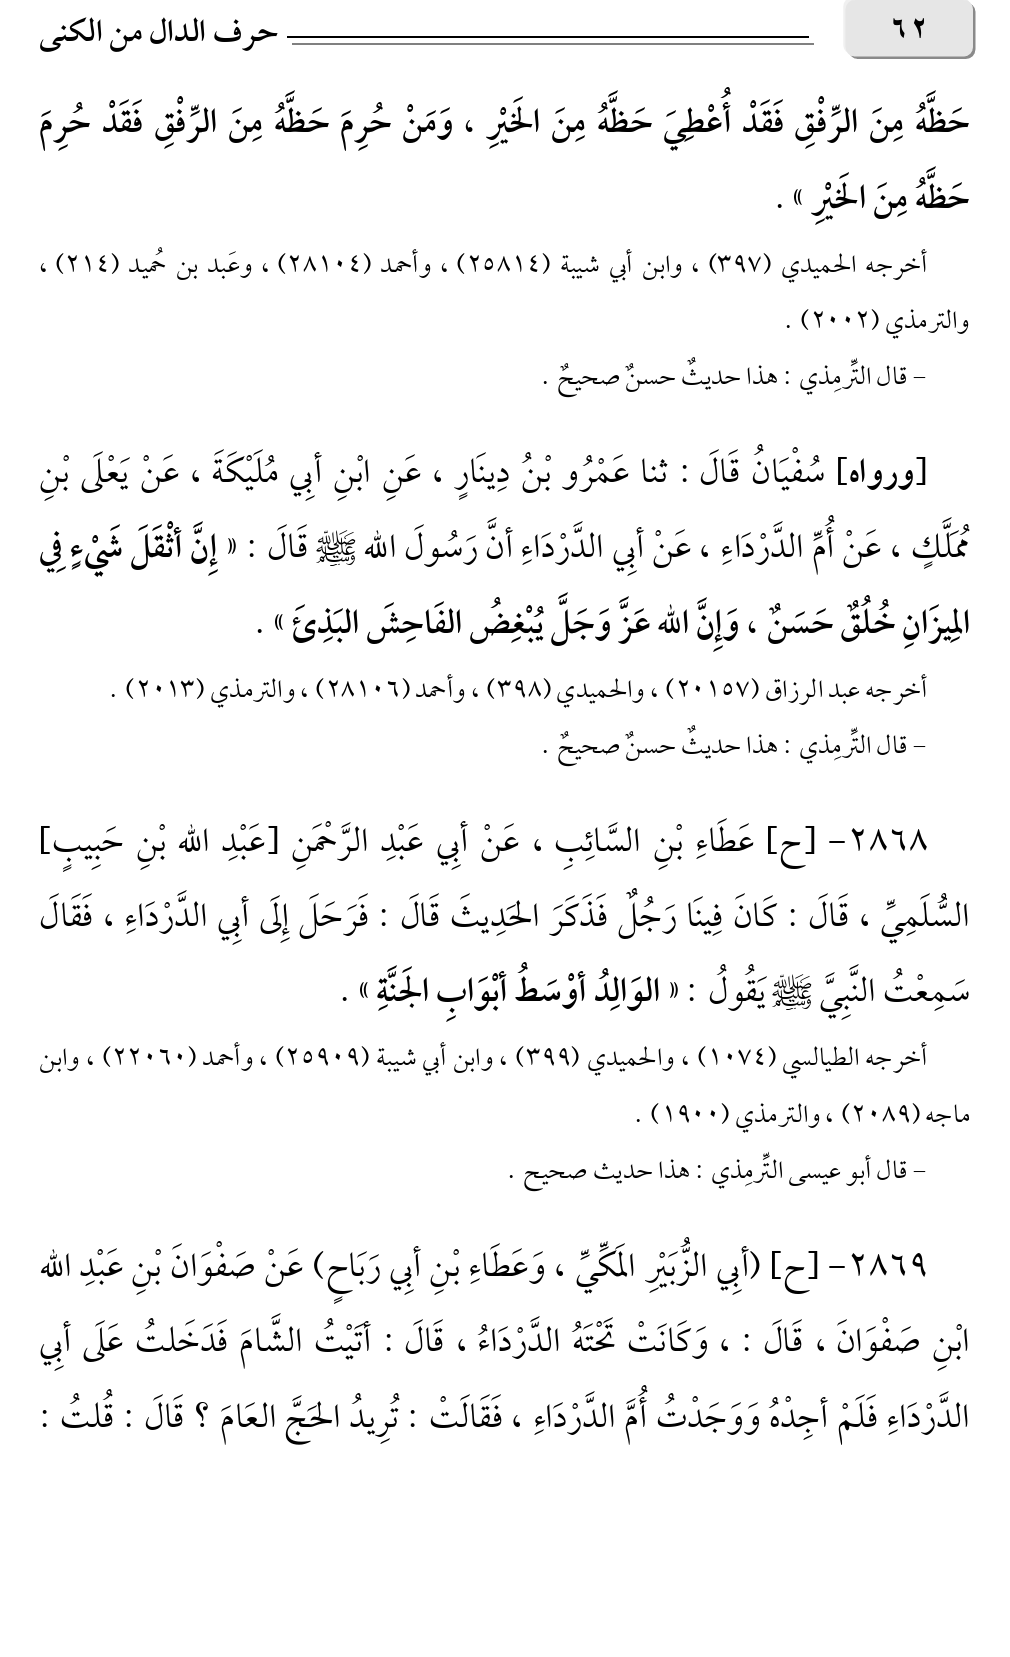 ٦٢
حرف الدال من الكنى
حَظَّهُ مِنَ الرِّفْقِ فَقَدْ أُعْطِيَ حَظَّهُ مِنَ الخَيْرِ ، وَمَنْ حُرِمَ حَظَّهُ مِنَ الرِّفْقِ فَقَدْ حُرِمَ
حَظَّهُ مِنَ الخَيْرِ » .
أخرجه الحميدي (٣٩٧) ، وابن أبي شيبة (٢٥٨١٤) ، وأحمد (٢٨١٠٤) ، وعَبد بن حُميد (٢١٤) ،
والترمذي (٢٠٠٢) .
– قال التِّرمِذي : هذا حديثٌ حسنٌ صحيحٌ .
[ورواه] سُفْيَانُ قَالَ : ثنا عَمْرُو بْنُ دِينَارٍ ، عَنِ ابْنِ أبِي مُلَيْكَةَ ، عَنْ يَعْلَى بْنِ
مُمَلَّكٍ ، عَنْ أُمِّ الدَّرْدَاءِ ، عَنْ أبِي الدَّرْدَاءِ أنَّ رَسُولَ الله ﷺ قَالَ : « إِنَّ أثْقَلَ شَيْءٍ فِي
المِيزَانِ خُلُقٌ حَسَنٌ ، وَإِنَّ الله عَزَّ وَجَلَّ يُبْغِضُ الفَاحِشَ البَذِئَ » .
أخرجه عبد الرزاق (٢٠١٥٧) ، والحميدي (٣٩٨) ، وأحمد (٢٨١٠٦) ، والترمذي (٢٠١٣) .
– قال التِّرمِذي : هذا حديثٌ حسنٌ صحيحٌ .
٢٨٦٨– [ح] عَطَاءِ بْنِ السَّائِبِ ، عَنْ أبِي عَبْدِ الرَّحْمَنِ [عَبْدِ الله بْنِ حَبِيبٍ]
السُّلَمِيِّ ، قَالَ : كَانَ فِينَا رَجُلٌ فَذَكَرَ الحَدِيثَ قَالَ : فَرَحَلَ إِلَى أبِي الدَّرْدَاءِ ، فَقَالَ
سَمِعْتُ النَّبِيَّ ﷺ يَقُولُ : « الوَالِدُ أوْسَطُ أبْوَابِ الجَنَّةِ » .
أخرجه الطيالسي (١٠٧٤) ، والحميدي (٣٩٩) ، وابن أبي شيبة (٢٥٩٠٩) ، وأحمد (٢٢٠٦٠) ، وابن
ماجه (٢٠٨٩) ، والترمذي (١٩٠٠) .
– قال أبو عيسى التِّرمِذي : هذا حديث صحيح .
٢٨٦٩– [ح] (أبِي الزُّبَيْرِ المَكِّيِّ ، وَعَطَاءِ بْنِ أبِي رَبَاحٍ) عَنْ صَفْوَانَ بْنِ عَبْدِ الله
ابْنِ صَفْوَانَ ، قَالَ : ، وَكَانَتْ تَحْتَهُ الدَّرْدَاءُ ، قَالَ : أتَيْتُ الشَّامَ فَدَخَلتُ عَلَى أبِي
الدَّرْدَاءِ فَلَمْ أجِدْهُ وَوَجَدْتُ أُمَّ الدَّرْدَاءِ ، فَقَالَتْ : تُرِيدُ الحَجَّ العَامَ ؟ قَالَ : قُلتُ :